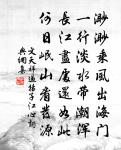 渺渺乘風出海門
一行淡水帶潮渾
長江盡處還如此
何日岷山看發源
文天祥過揚子江心
與潤集